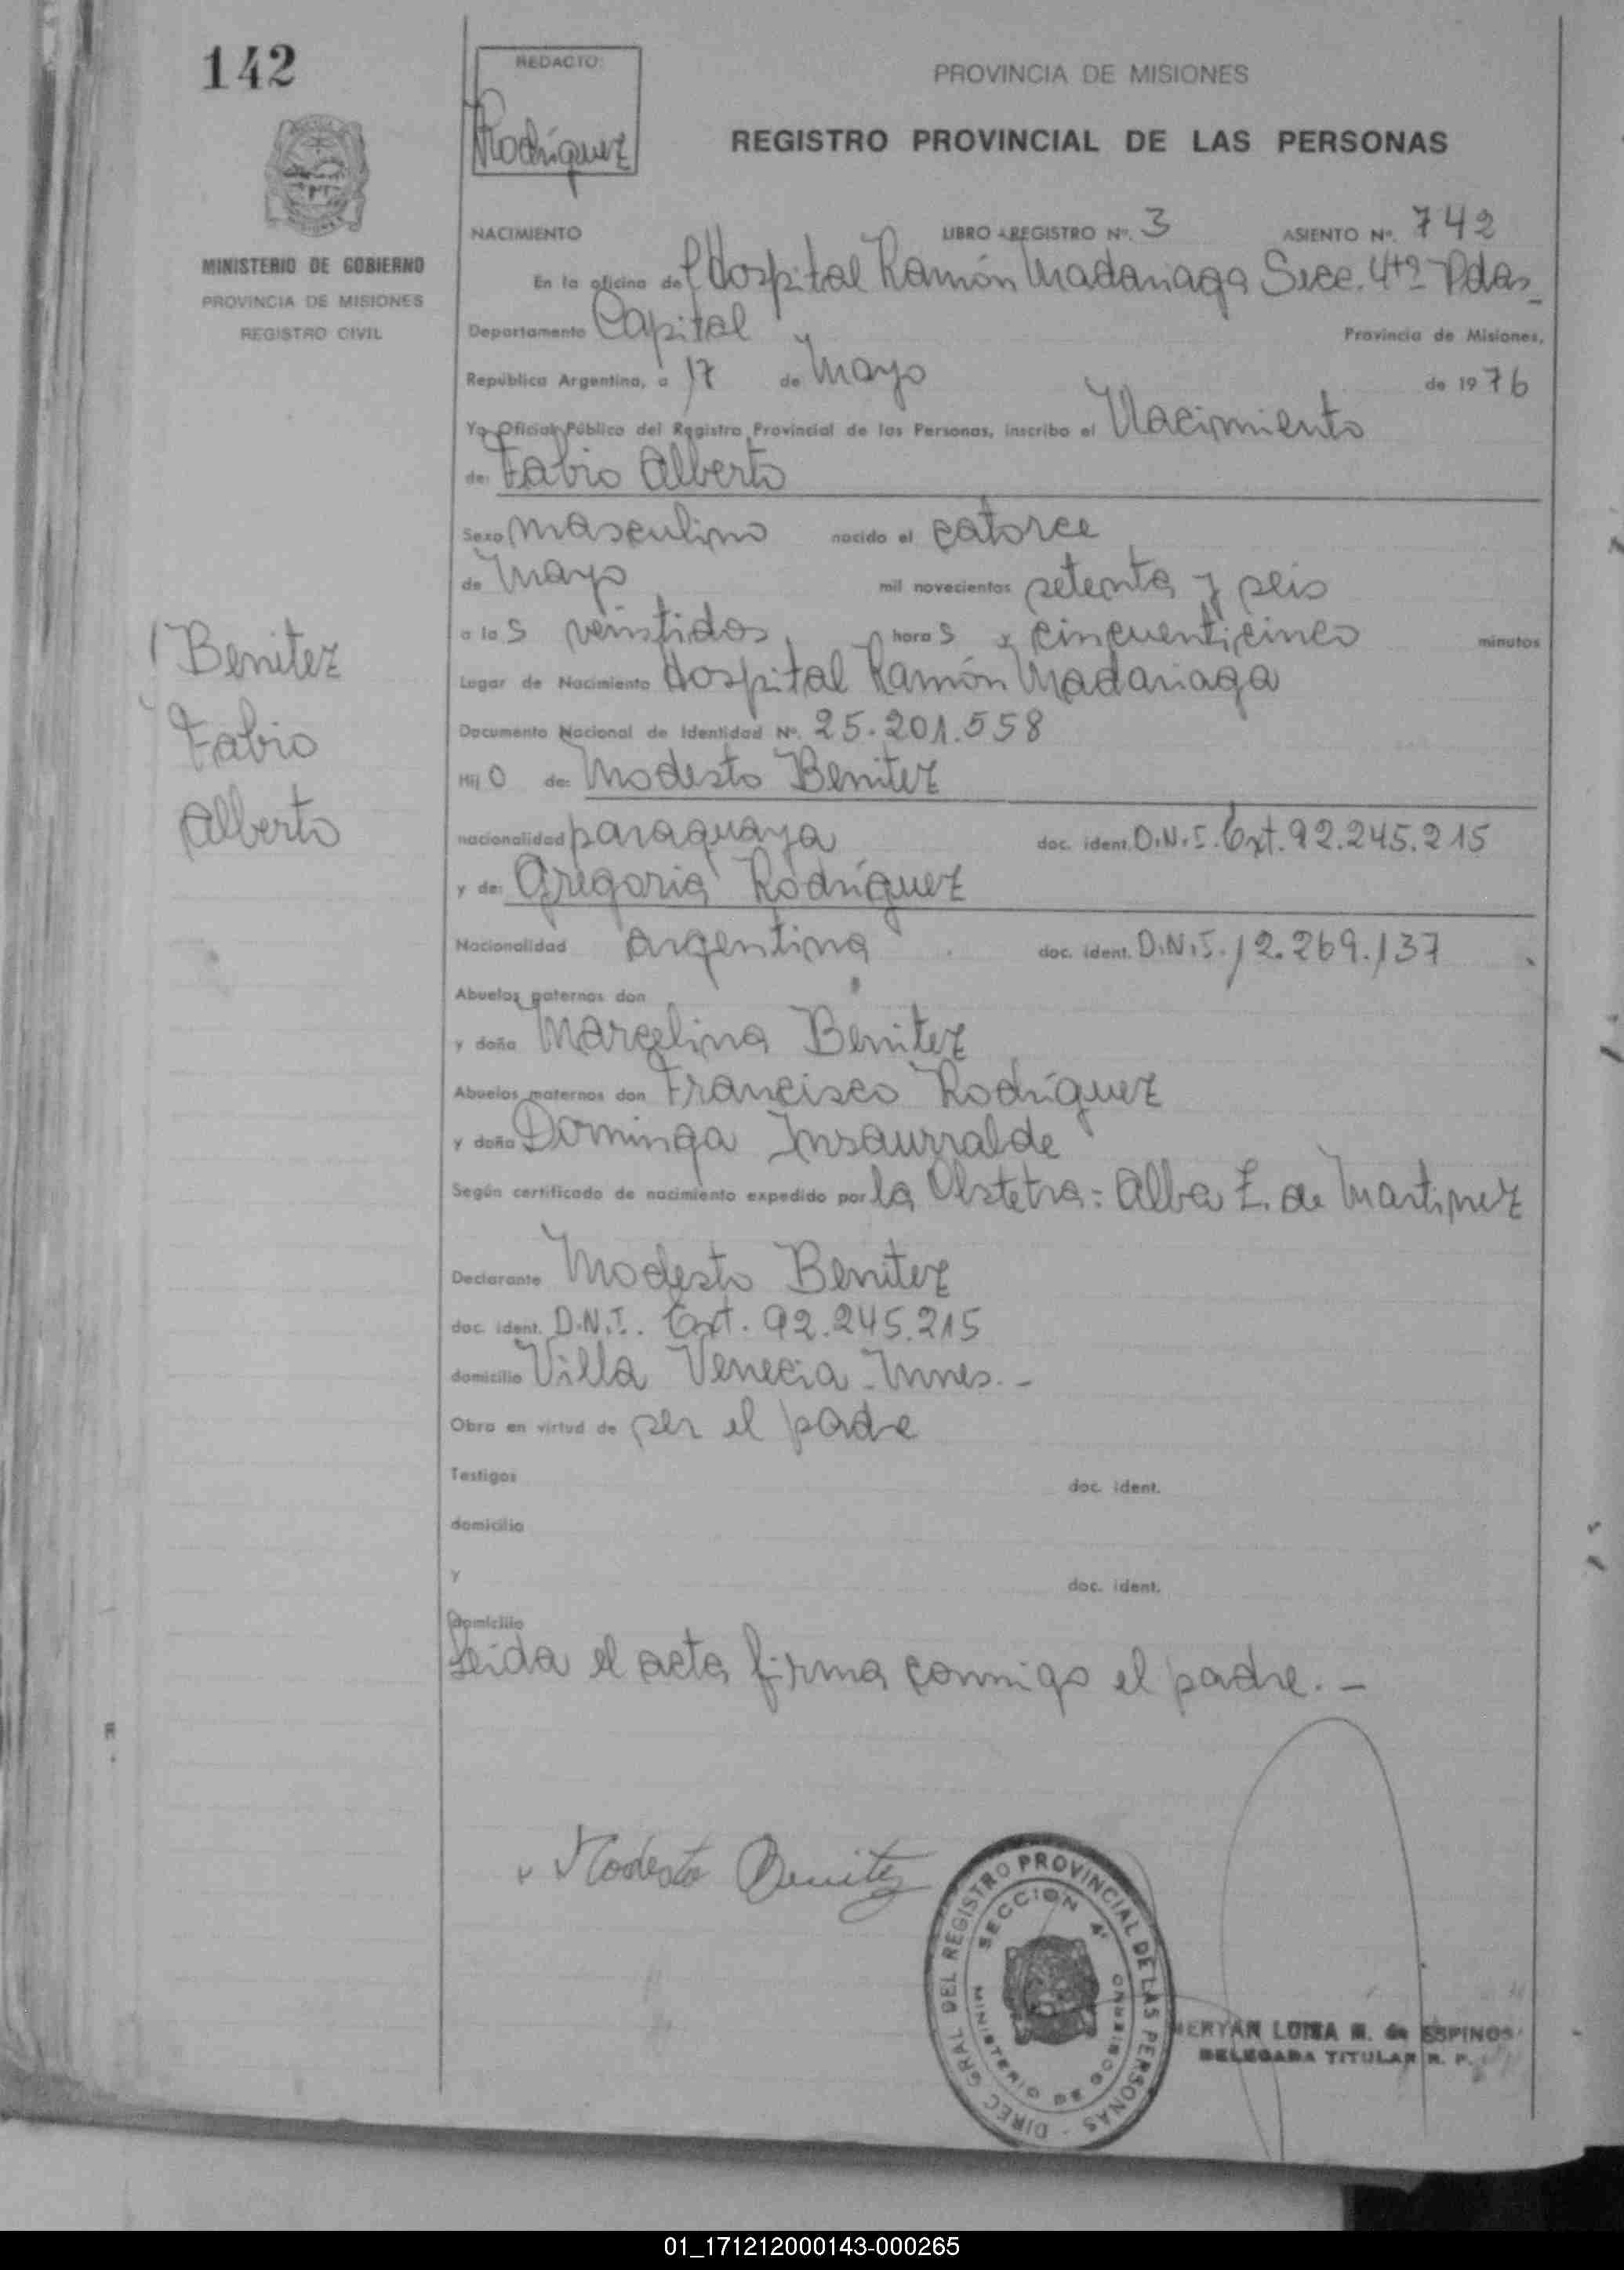 142
REDACTO:
Rodríguez
PROVINCIA DE MISIONES
REGISTRO PROVINCIAL DE LAS PERSONAS
MINISTERIO DE GOBIERNO
PROVINCIA DE MISIONES
REGISTRO CIVIL
NACIMIENTO LIBRO - REGISTRO Nº. 3 ASIENTO Nº. 742
En la oficina del Hospital Ramón Madariaga Secc. 4ta Pdas_
Departamento Capital Provincia de Misiones,
República Argentina, a 17 de Mayo de 1976
Yo Oficial Público del Registro Provincial de las Personas, inscribo el Nacimiento
de: Fabio Alberto
Sexo masculino nacido el catorce
de Mayo mil novecientos setenta y seis
a las veintidos horas y cincuenticinco minutos
Lugar de Nacimiento Hospital Ramón Madariaga
Documento Nacional de Identidad Nº. 25.201.558
Hijo de: Modesto Benitez
nacionalidad paraguaya doc. ident. D.N.I. Ext. 92.245.215
y de: Gregoria Rodríguez
Nacionalidad argentina doc. ident. D.N.I. 12.269.137
Abuelos paternos don
y doña Marcelina Benitez
Abuelos maternos don Francisco Rodríguez
y doña Dominga Insaurralde
Según certificado de nacimiento expedido por la Obstetra: Alba E. de Martinez
Declarante Modesto Benitez
doc. ident. D.N.I. Ext. 92.245.215
domicilio Villa Venecia - Mnes. -
Obra en virtud de ser el padre
Testigos doc. ident.
domicilio
y doc. ident.
domicilio
Leida el acta firma conmigo el padre. -
Benitez
Fabio
Alberto
Modesto Benitez
DIREC GRAL DEL REGISTRO PROVINCIAL DE LAS PERSONAS -
SECCION 4ª
MINISTERIO DE GOBIERNO
LUISA M. de ESPINOS
DELEGADA TITULAR R. P.
01_171212000143-000265